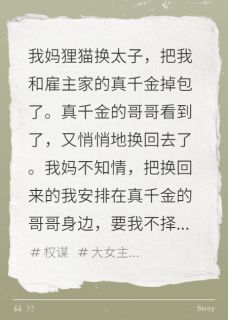 我妈狸猫换太子，把我
和雇主家的真千金掉包
了。真千金的哥哥看到
了，又悄悄地换回去了
。我妈不知情，把换回
来的我安排在真千金的
哥哥身边，要我不择...
# 权谋 # 大女主...
Story